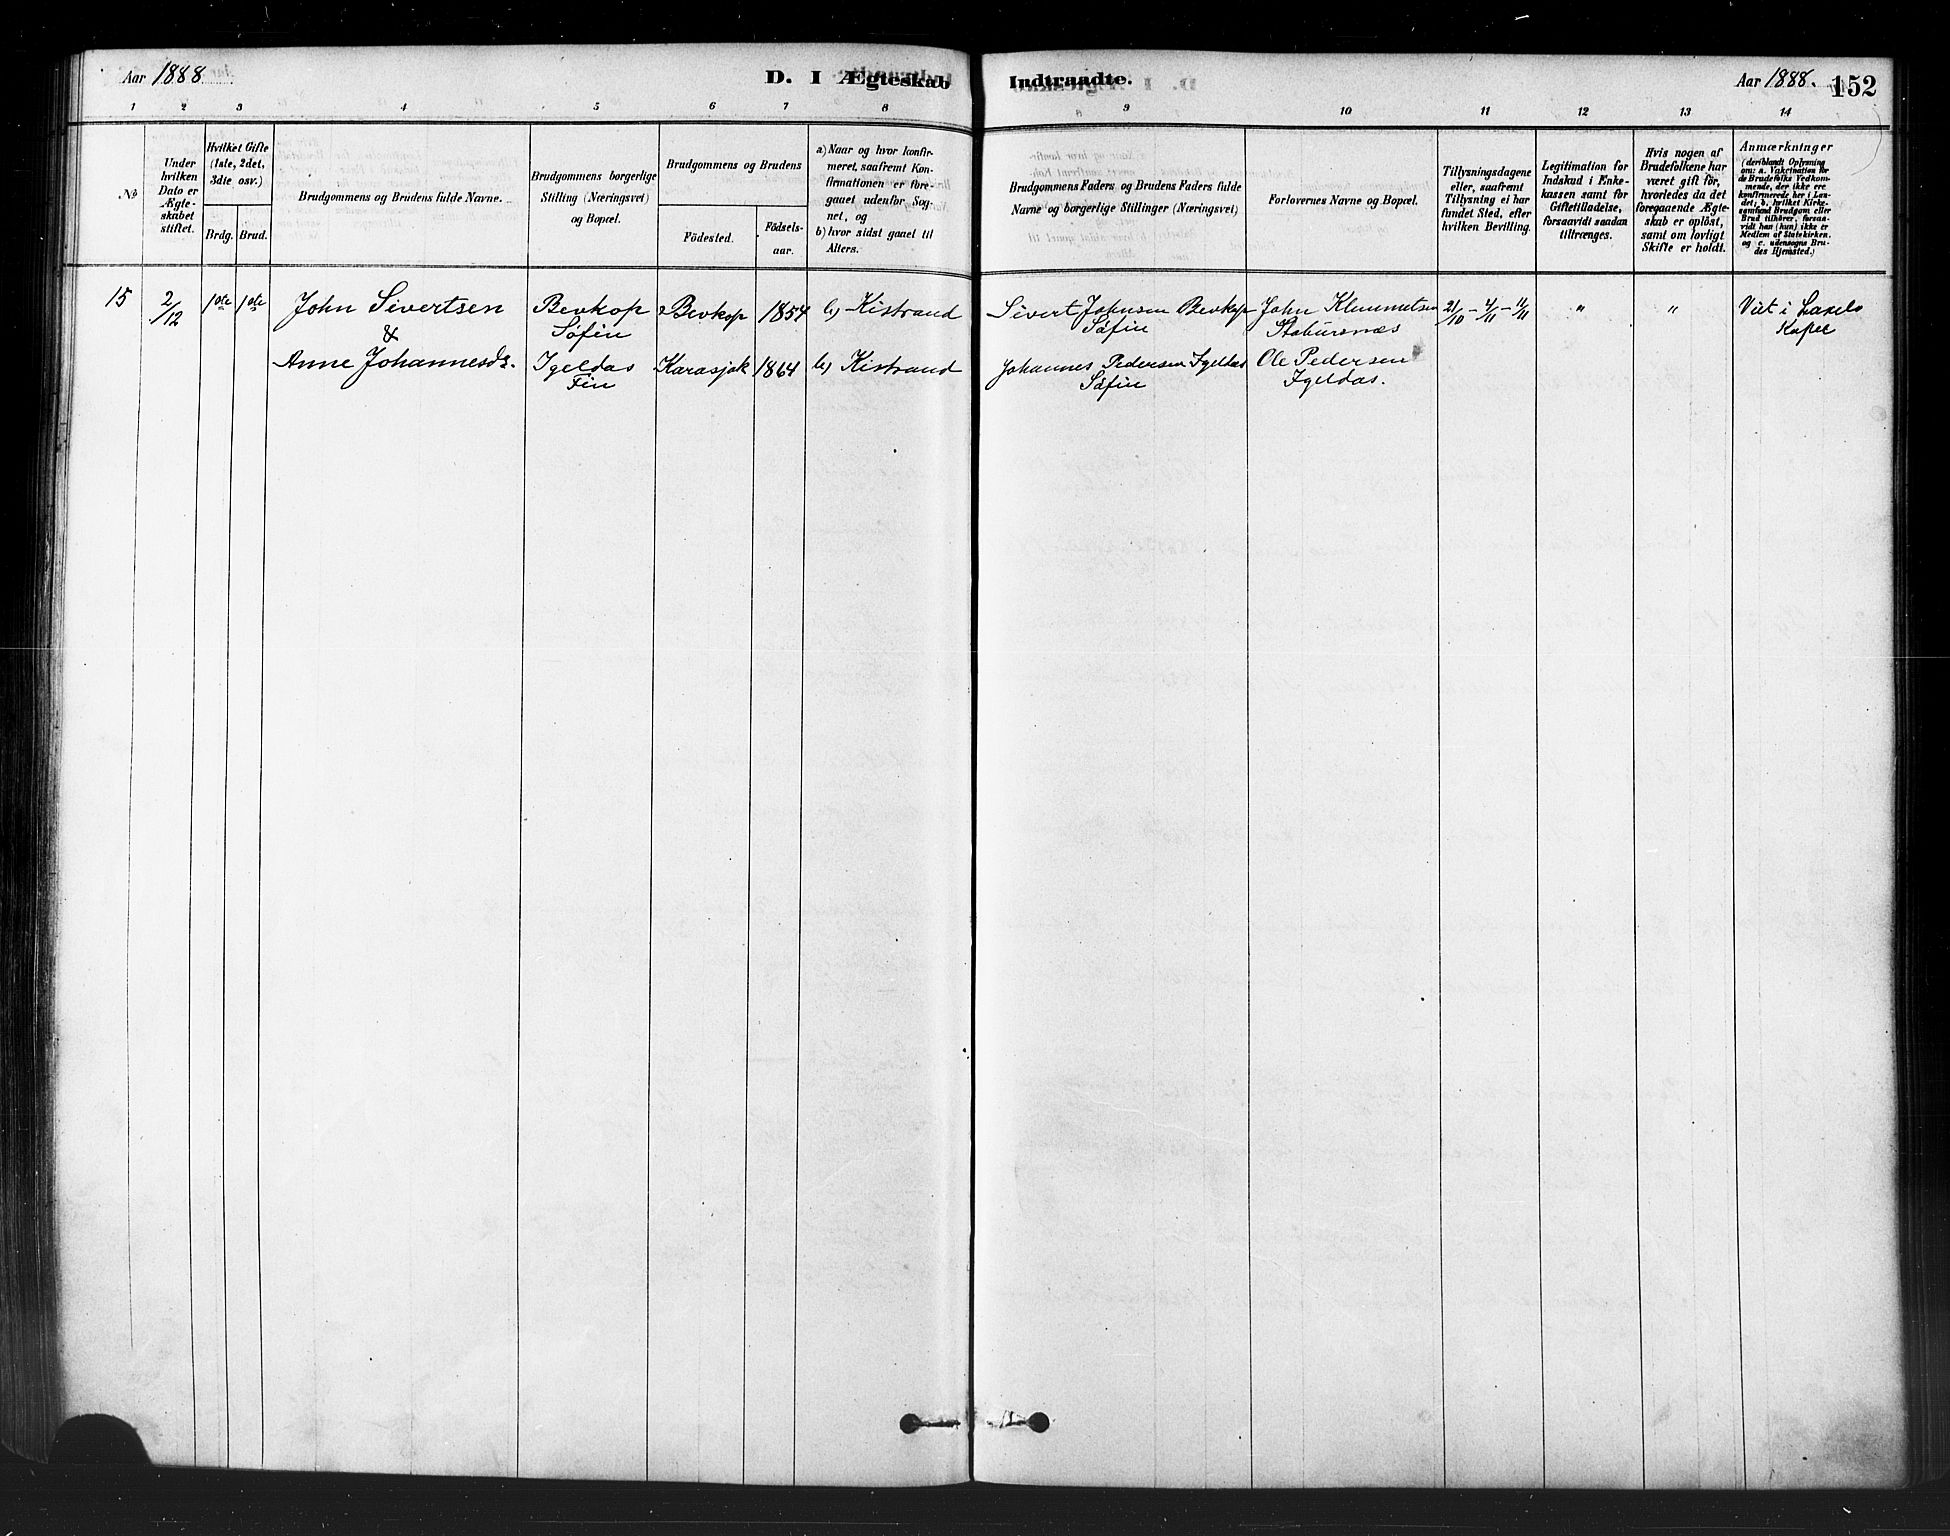 Aar 1888
D. I Ægteskab
Indtraadte.
Aar 1888.
152
1 2 3 4 5 6 7 8 9 10 11 12 13 14
No
Under
hvilken
Dato er
Ægte-
skabet
stiftet.
Hvilket Gifte
(1ste, 2det,
3die osv.)
Brdg. Brud.
Brudgommens og Brudens fulde Navne.
Brudgommens borgerlige
Stilling (Næringsvei)
og Bopæl.
Brudgommens og Brudens
Födested.
Födsels-
aar.
a) Naar og hvor konfir-
meret, saafremt Kon-
firmationen er fore-
gaaet udenfor Sog-
net, og
b) hvor sidst gaaet til
Alters.
Brudgommens Faders og Brudens Faders fulde
Navne og borgerlige Stillinger (Næringsvei)
Forlovernes Navne og Bopæl.
Tillysningsdagene
eller, saafremt
Tillysning ei har
fundet Sted, efter
hvilken Bevilling.
Legitimation for
Indskud i Enke-
kassen samt for
Giftetilladelse,
forsaavidt saadan
tiltrænges.
Hvis nogen af
Brudefolkene har
været gift för,
hvorledes da det
foregaaende Ægte-
skab er oplöst,
samt om lovligt
Skifte er holdt.
Anmærkninger
(deriblandt Oplysning
om: a. Vakcination for
de Brudefolks Vedkom-
mende, der ikke ere
konfirmerede her i Lan-
det; b. hvilket Kirke-
samfund Brudgom eller
Brud tilhörer, forsaa-
vidt han (hun) ikke er
Medlem af Statskirken.
og c. udensogns Bru-
des Hjemsted.)
15 2/12 1ste 1ste John Sivertsen Bevkop Bevkop 1854 b) Kistrand Sivert Johnsen Bevkop John Klemmetsen 21/10 - 4/11 - 11/11 " " Viet i Laxelv
& Søfin Søfin Stabursnæs Kapel
Anne Johannesdr. Igeldas Karasjok 1864 b) Kistrand Johannes Pedersen Igeldas Ole Pedersen
Fin Søfin Igeldas.